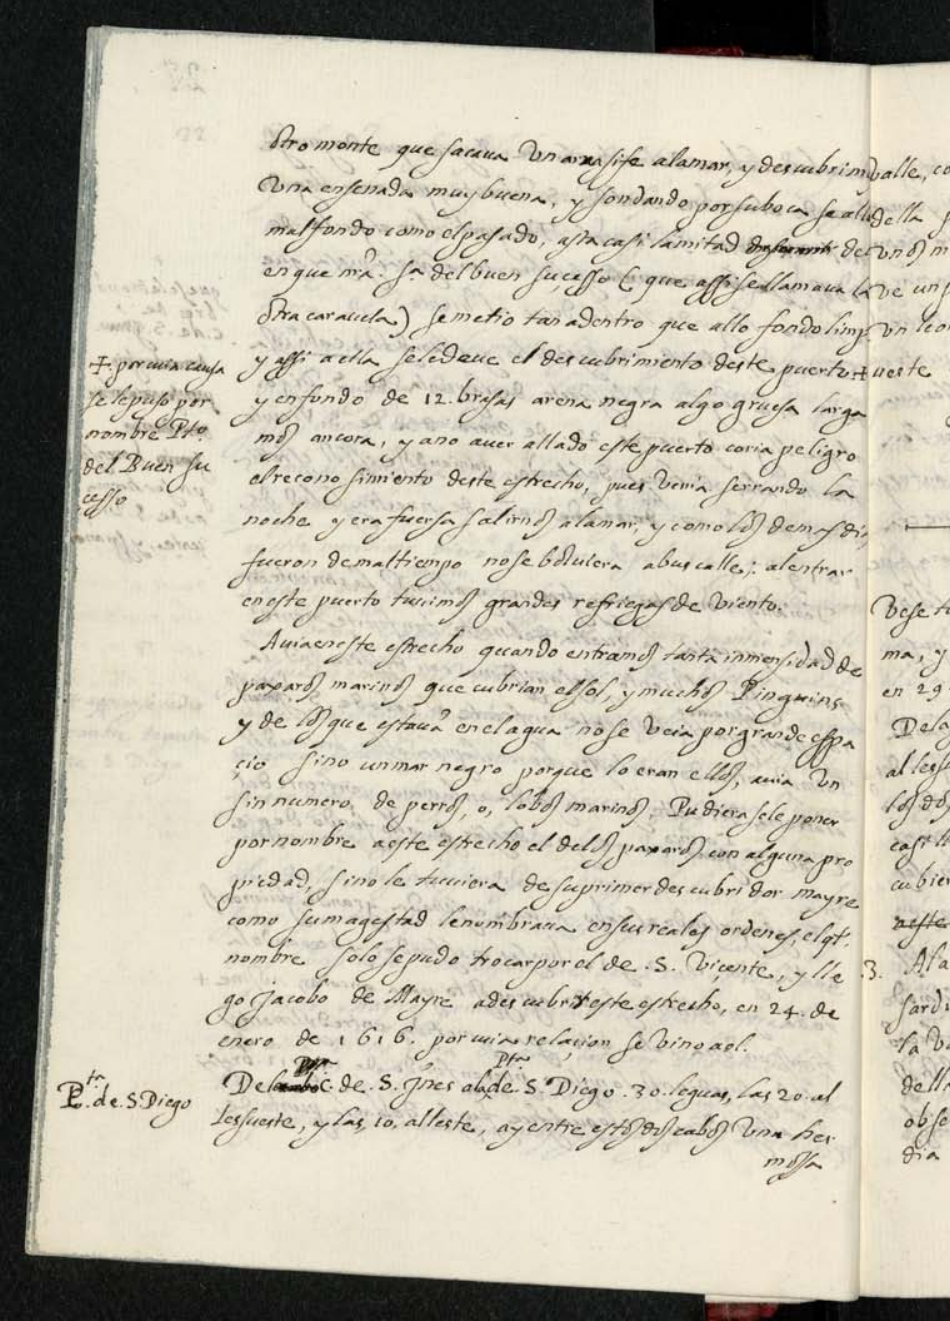 otro monte que sacava Un arrasife alamar, y descubrim
Una ensenada muy buena, y sondando por suboca se allo
mal fondo como el pasado, asta casi lamitad de
en que nrã. Sa. del buen suçesso (que assi se llamava la
otra caravela) semetio tan adentro que allo fondo limp
y assi aella seledeve el descubrimiento deste puerto +
y en fondo de 12. brasas arena negra algo gruesa larga
mos ancora, y ano aver allado este puerto coria peligro
el recono simiento deste estrecho, pues venia serrando la
noche y era fuersa salirnos alamar, y como los demas di
fueron demaltiempo nose bolviera abuscalle; alentrar
eneste puerto tuvimos grandes refriegas de viento.
Avia eneste estrecho quando entramos tanta inmensidad de
paxaros marinos que cubrian el sol, y muchos Pinguins
y de los que estavã enel agua nose veia por grande espa
çio sino unmar negro porque lo eran ellos, avia Un
sin numero de perros, o, lobos marinos. Pudiera sele poner
por nombre aeste estrecho el delos paxaros con alguna pro
piedad, sino le tuviera de suprimer descubridor mayre
como sumagestad lenombrava ensus reales ordenes, elqt.
nombre solo se pudo trocar por el de .S. Viçente, y lle
go Jacobo de Mayre adescubrir este estrecho, en 24. de
enero de 1616. por cuia relaçion se vino aol.
Del C. de .S. Ynes ala Pta de S. Diego .30. leguas, las 20. al
lessueste, y las, 10. alleste, ay entre estos dos cabos Una her
mosa
+. por cuia causa
se le puso por
nombre Pto.
del Buen su
çesso
Pta. de .S. Diego
valle, co
della
unos m
ve un
un leo
ueste
Vese t
ma, y
en 29
Dela
al less
los do
cast
cubier
aeste
3. Ala
sardi
la V
dell
obse
dia